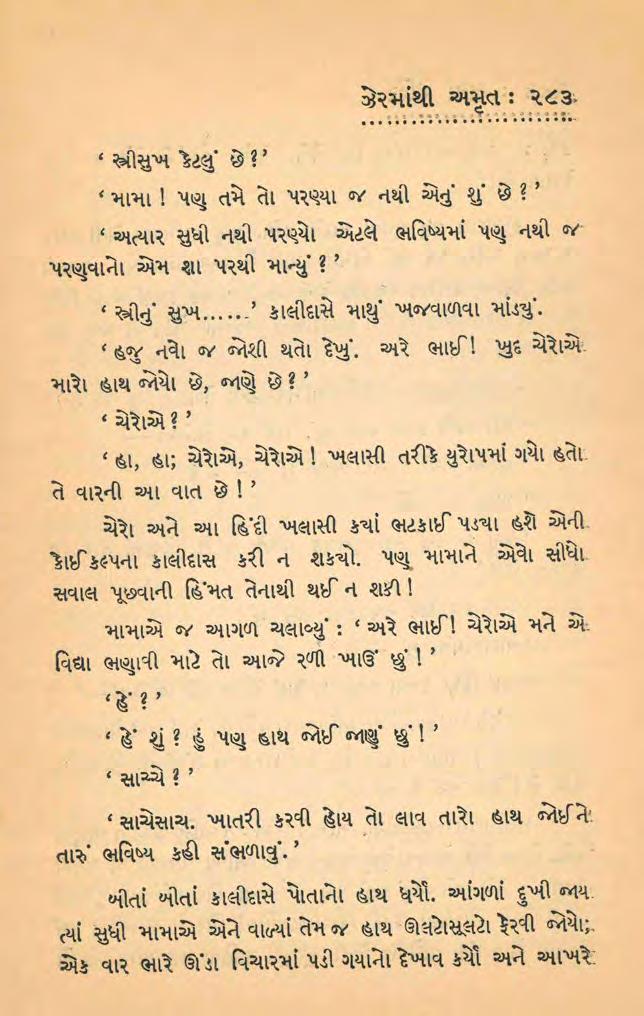 ઝેરમાંથી અમૃત : ૨૮૩
‘ સ્ત્રીસુખ કેટલું છે ? ’
‘ મામા ! પણ તમે તો પરણ્યા જ નથી એનું શું છે ? ’
‘ અત્યાર સુધી નથી પરણ્યો એટલે ભવિષ્યમાં પણ નથી જ
પરણવાનો એમ શા પરથી માન્યું ? ’
‘ સ્ત્રીનું સુખ...... ’ કાલીદાસે માથું ખજવાળવા માંડ્યું.
‘ હજુ નવો જ જોશી થતો દેખું. અરે ભાઈ! ખુદ ચેરોએ
મારો હાથ જોયો છે, જાણે છે ? ’
‘ ચેરોએ ? ’
‘ હા, હા; ચેરોએ, ચેરોએ ! ખલાસી તરીકે યુરોપમાં ગયો હતો
તે વારની આ વાત છે ! ’
ચેરો અને આ હિંદી ખલાસી કયાં ભટકાઈ પડયા હશે એની
કોઈ કલ્પના કાલીદાસ કરી ન શકયો. પણ મામાને એવો સીધો
સવાલ પૂછવાની હિંમત તેનાથી થઈ ન શકી !
મામાએ જ આગળ ચલાવ્યું : ‘ અરે ભાઈ! ચેરોએ મને એ
વિદ્યા ભણાવી માટે તો આજે રળી ખાઉં છું ! ’
‘ હેં ? ’
‘ હેં શું ? હું પણ હાથ જોઈ જાણું છું ! ’
‘ સાચ્ચે ? ’
‘ સાચેસાચ. ખાતરી કરવી હોય તો લાવ તારો હાથ જોઈને
તારું ભવિષ્ય કહી સંભળાવું. ’
બીતાં બીતાં કાલીદાસે પોતાનો હાથ ધર્યો. આંગળાં દુખી જાય
ત્યાં સુધી મામાએ એને વાળ્યાં તેમ જ હાથ ઊલટોસૂલટો ફેરવી જોયો;
એક વાર ભારે ઊંડા વિચારમાં પડી ગયાનો દેખાવ કર્યો અને આખરે